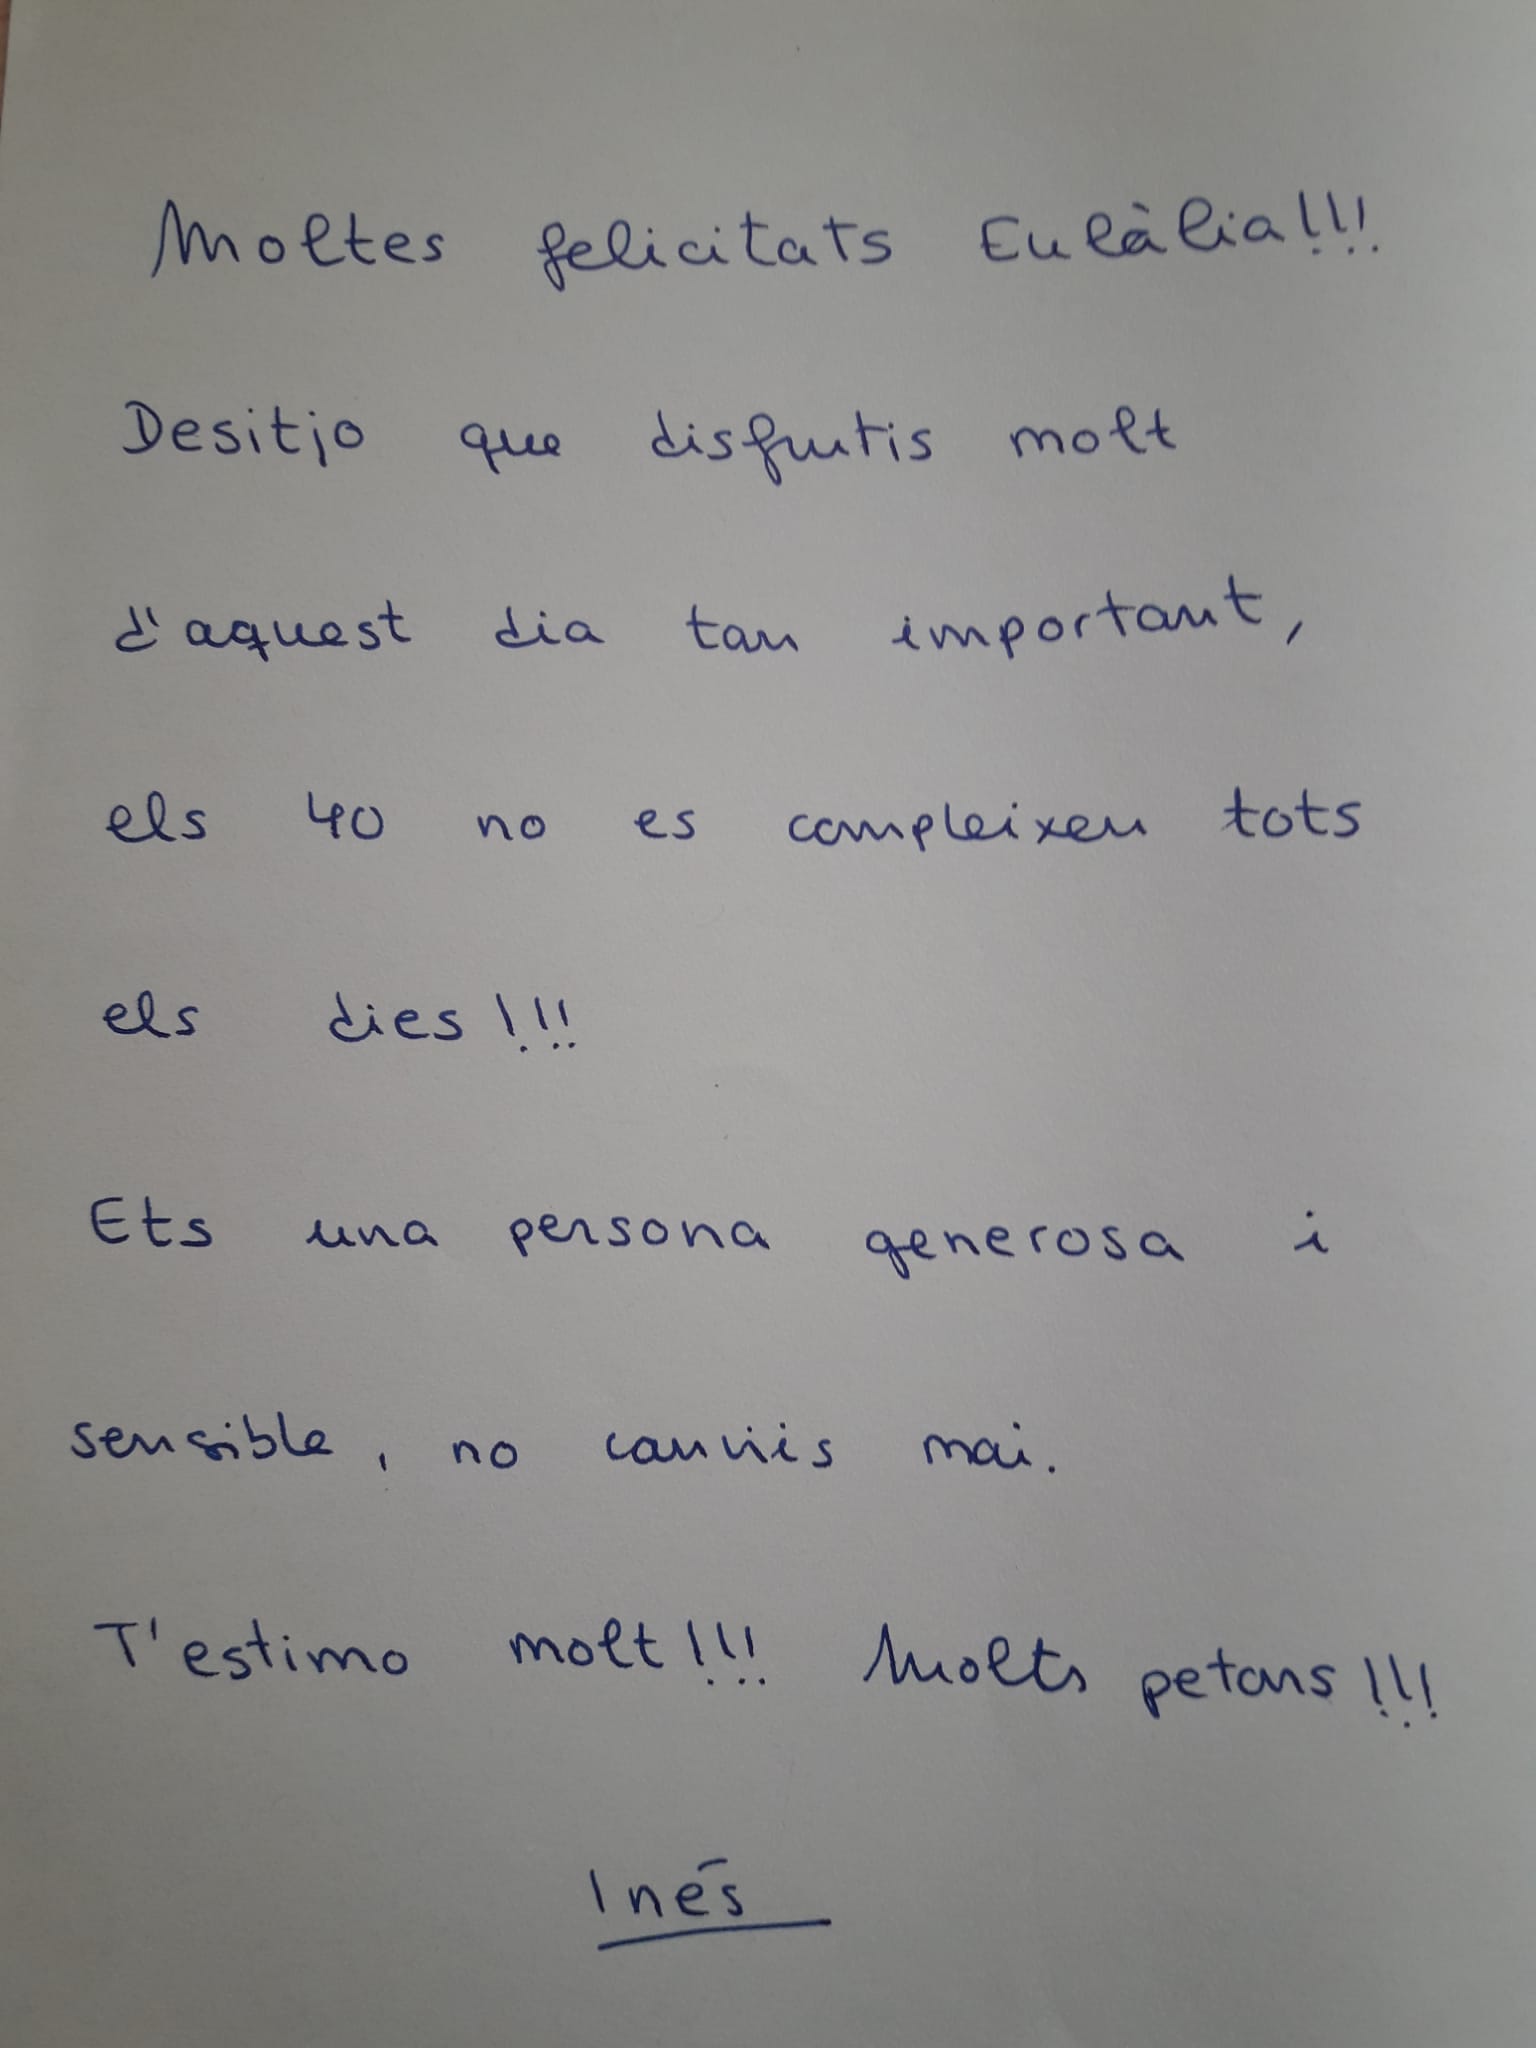 Moltes felicitats Eulàlia!!!
Desitjo que disfrutis molt
d'aquest dia tan important,
els 40 no es compleixen tots
els dies!!!
Ets una persona generosa i
sensible, no canviis mai.
T'estimo molt!!! Molts petons!!!
Inés